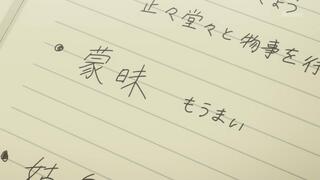 正々堂々と物事を行
• 蒙昧 もうまい